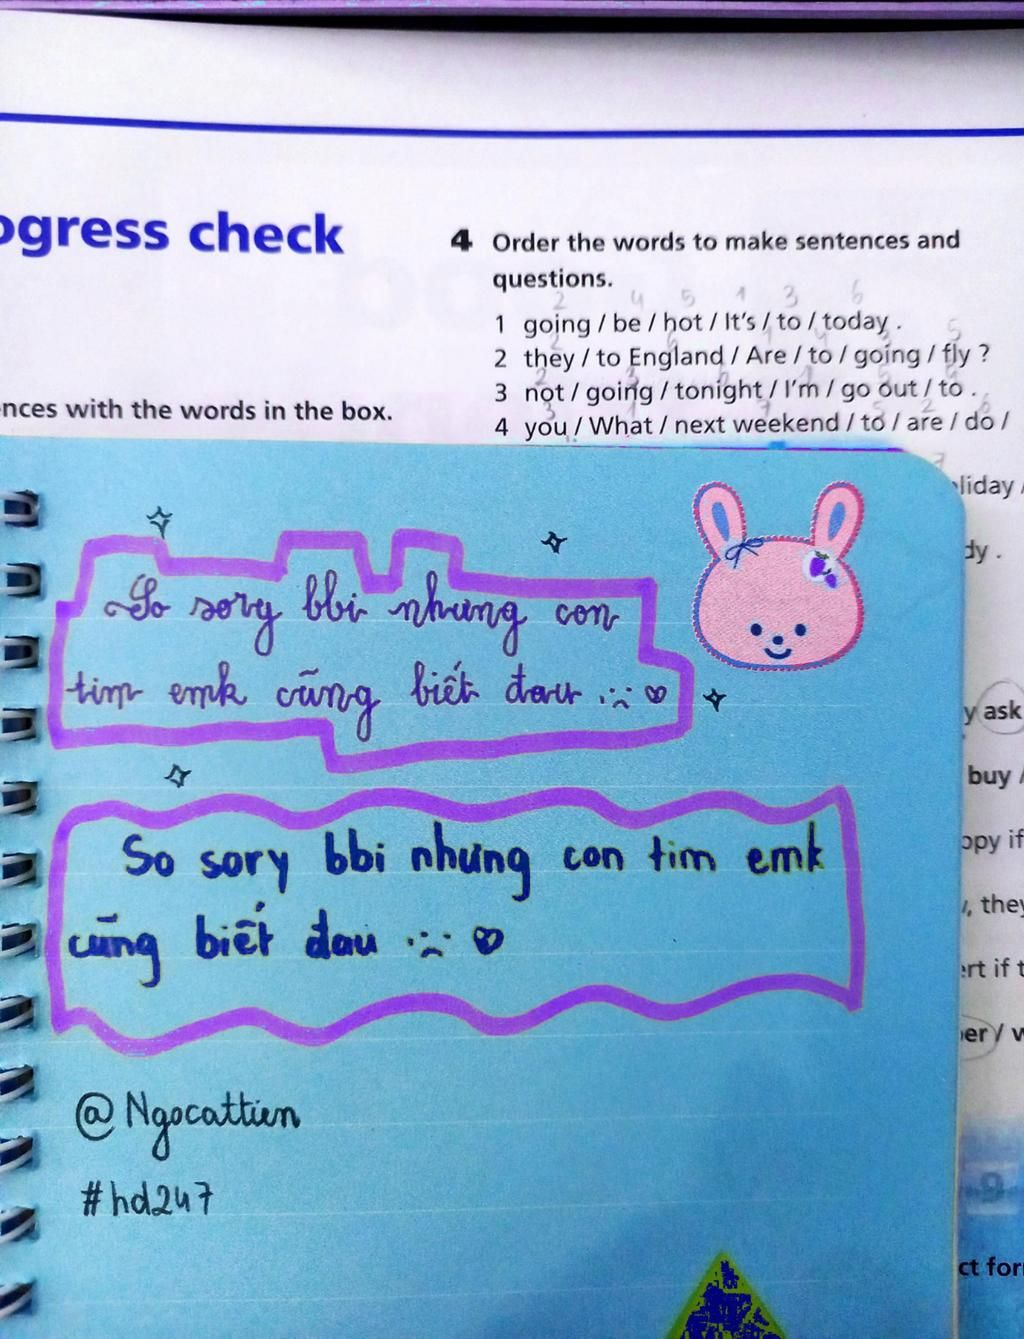 ogress check
4 Order the words to make sentences and
questions.
2 4 5 1 3 6
1 going / be / hot / It's / to / today .
2 they / to England / Are / to / going / fly ?
3 not / going / tonight / I'm / go out / to .
4 you / What / next weekend / to / are / do /
nces with the words in the box.
liday /
dy .
y ask
buy /
ppy if
, they
ert if t
er / w
9
ct for
So sory bbi nhưng con
tim emk cũng biết đau
So sory bbi nhưng con tim emk
cũng biết đau
@Ngocattien
#hd247